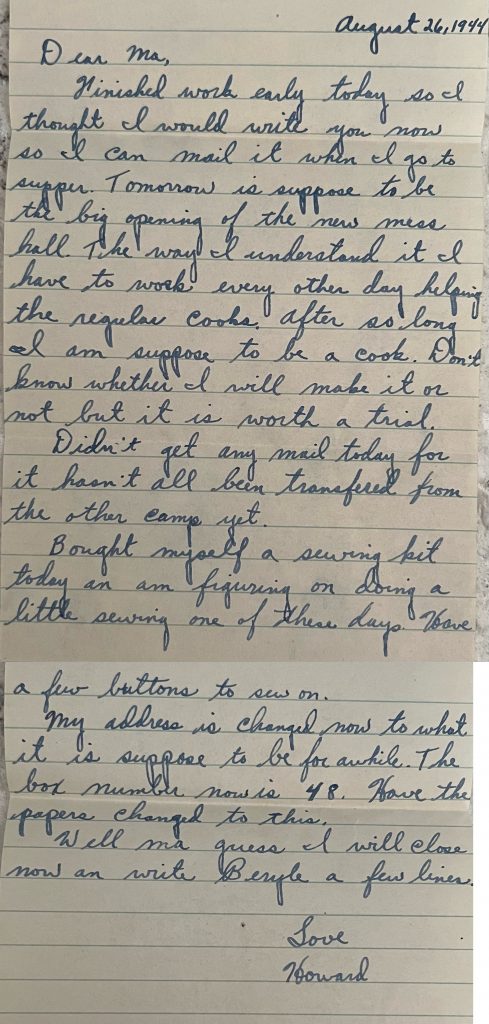 August 26, 1944
Dear Ma,
Finished work early today so I
thought I would write you now
so I can mail it when I go to
supper. Tomorrow is suppose to be
the big opening of the new mess
hall. The way I understand it I
have to work every other day helping
the regular cooks. After so long
I am suppose to be a cook. Don't
know whether I will make it or
not but it is worth a trial.
Didn't get any mail today for
it hasn't all been transfered from
the other camp yet.
Bought myself a sewing kit
today an am figuring on doing a
little sewing one of these days. Have
a few buttons to sew on.
My address is changed now to what
it is suppose to be for awhile. The
box number now is 48. Have the
papers changed to this.
Well ma guess I will close
now an write Beryle a few lines.
Love
Howard